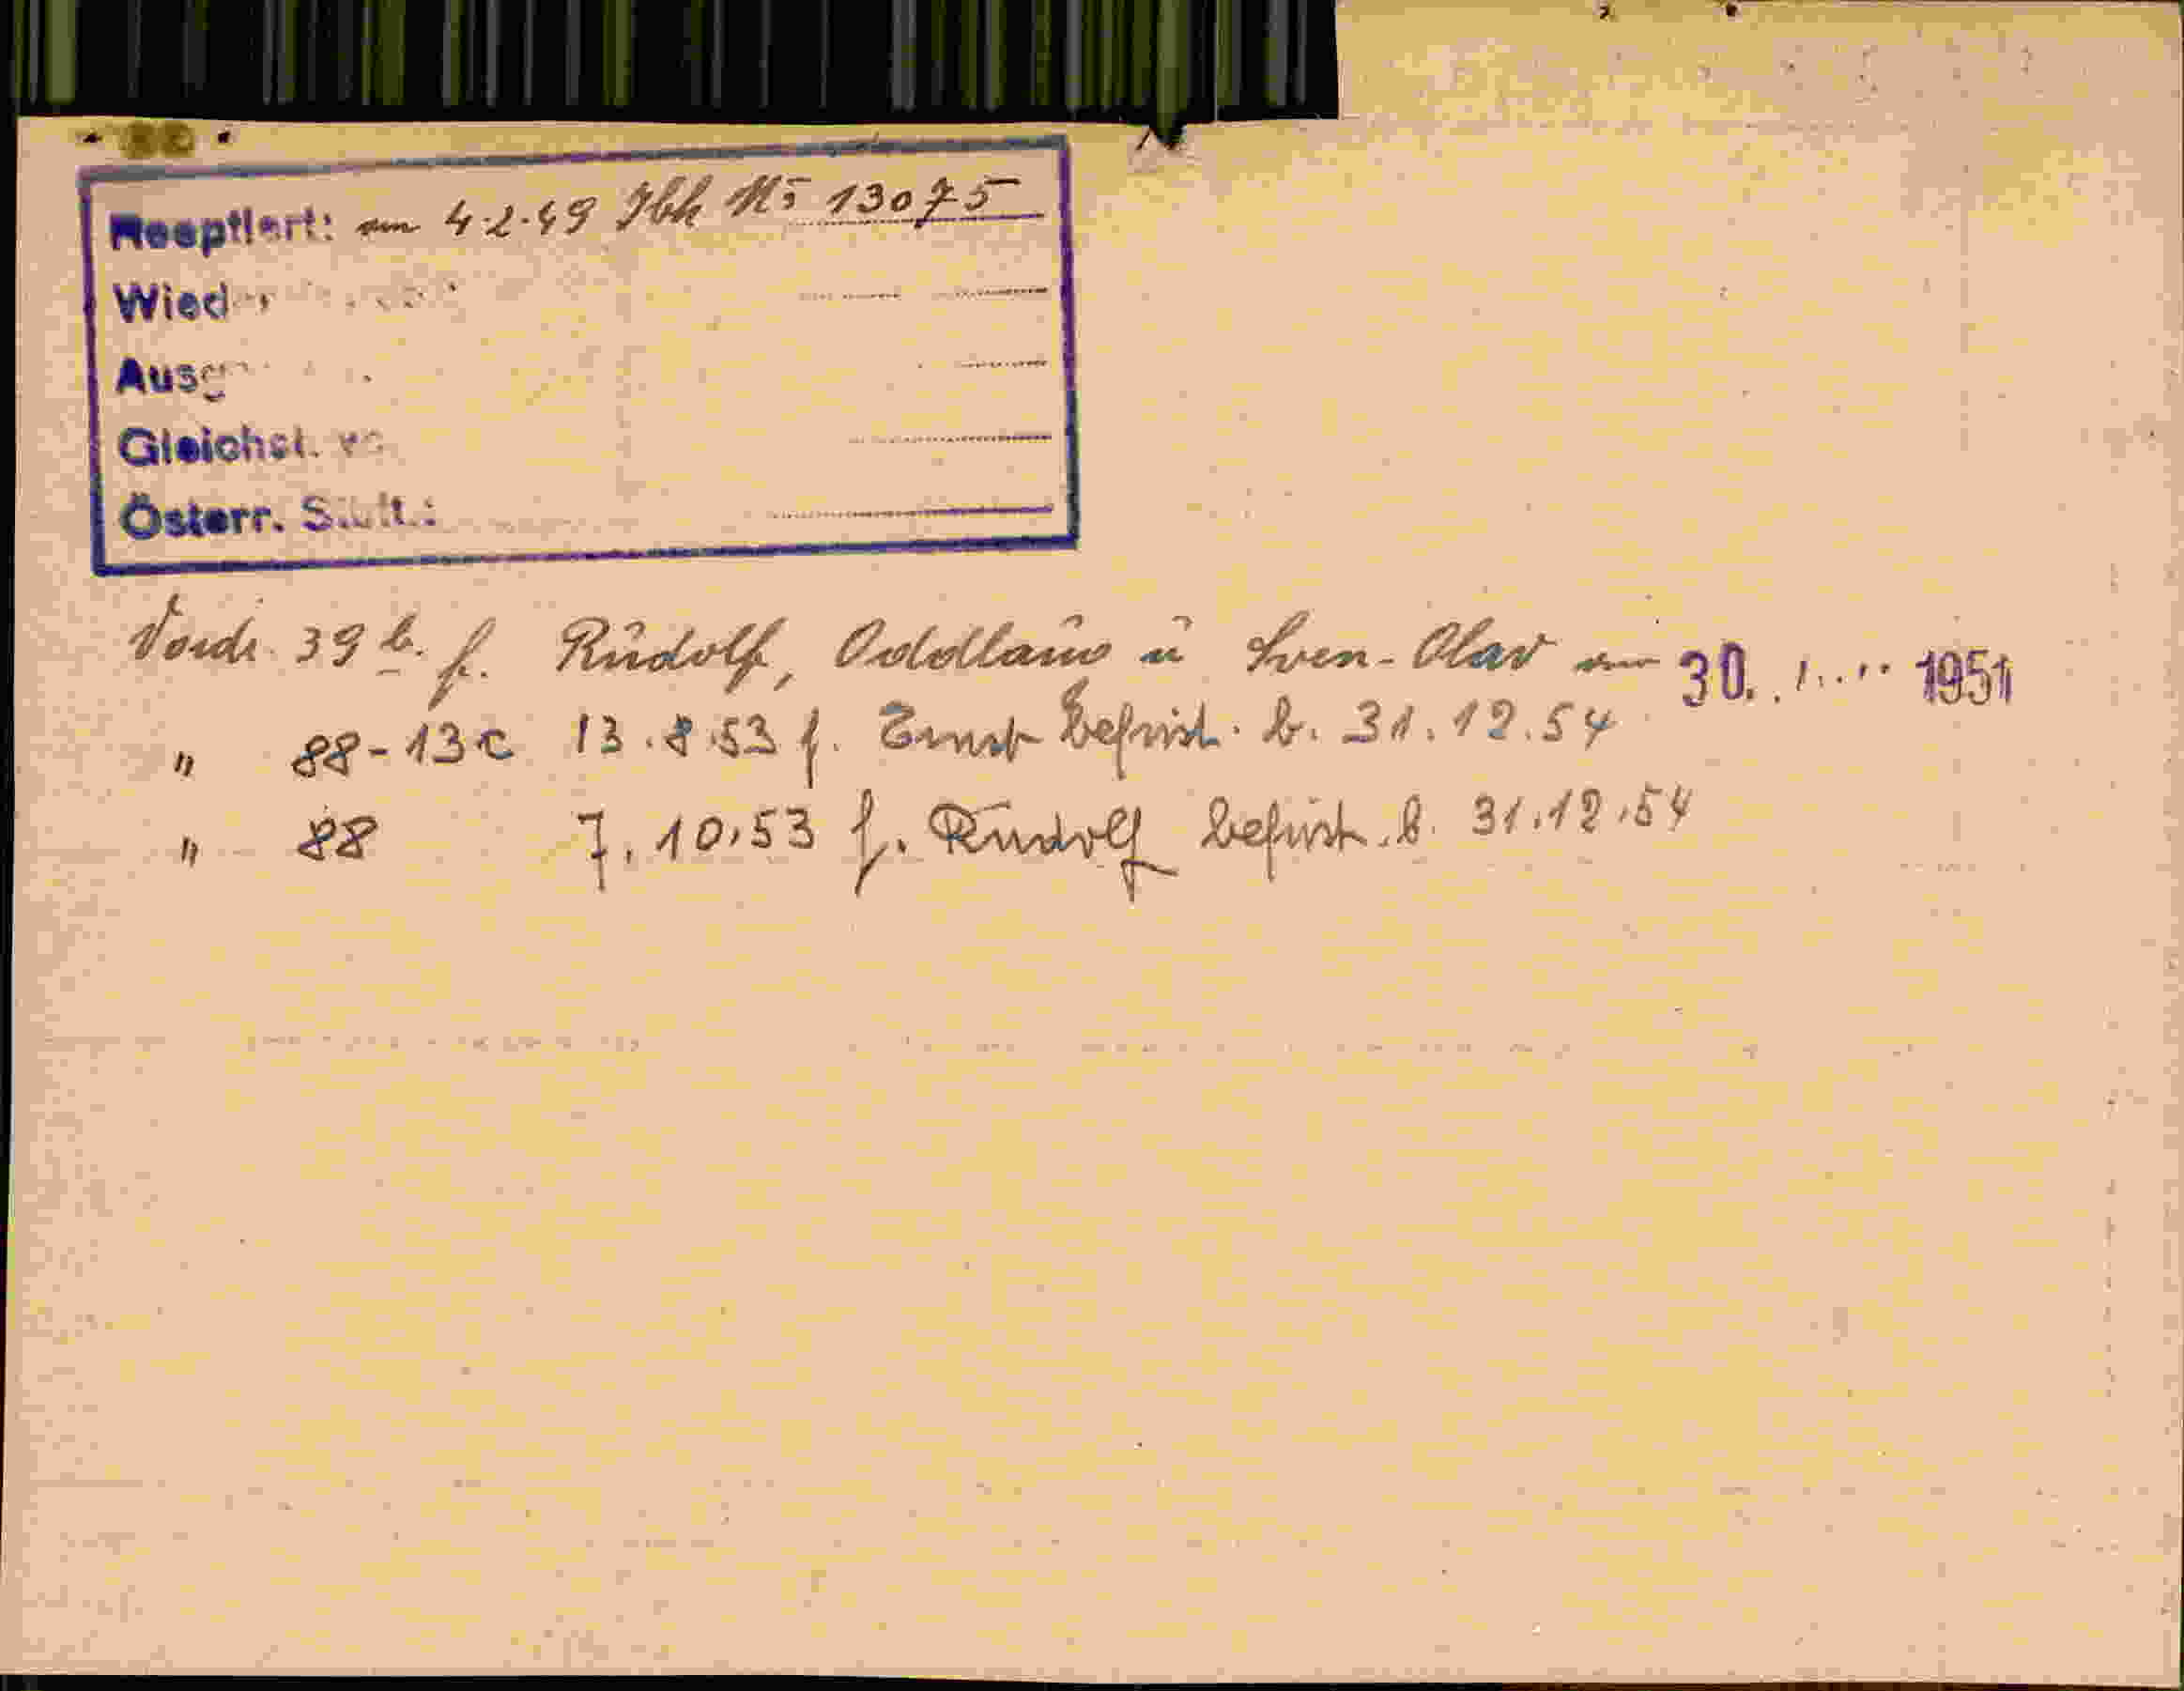 Reoptiert: am 4.2.49 Ibk No 13075
Wied
Ausg
Gleichst.
Österr.
Vordr. 39 b. f. Rudolf, Oddlaug u Sven-Olav am 30. 1951
" 88-13c 13.8.53 f. Ernst befrist. b. 31.12.54
" 88 7.10.53 f. Rudolf befrist. b. 31.12.54